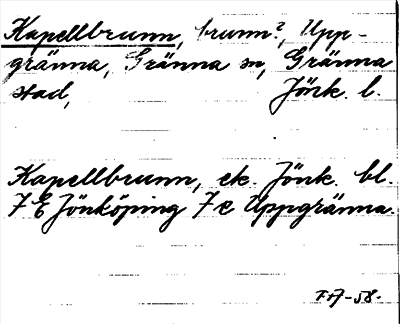 Kapellbrunn, brunn?, Upp-
gränna, Gränna sn, Gränna
stad, Jönk. l.
Kapellbrunn, ek. Jönk. bl.
7 E Jönköping 7 e Uppgränna.